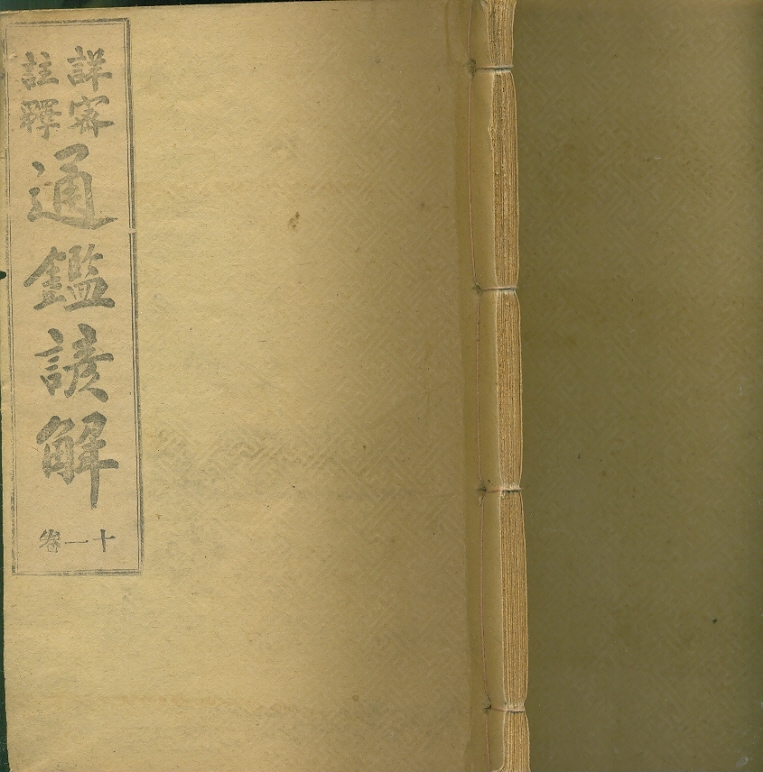 詳密註釋
通鑑諺解
十一卷